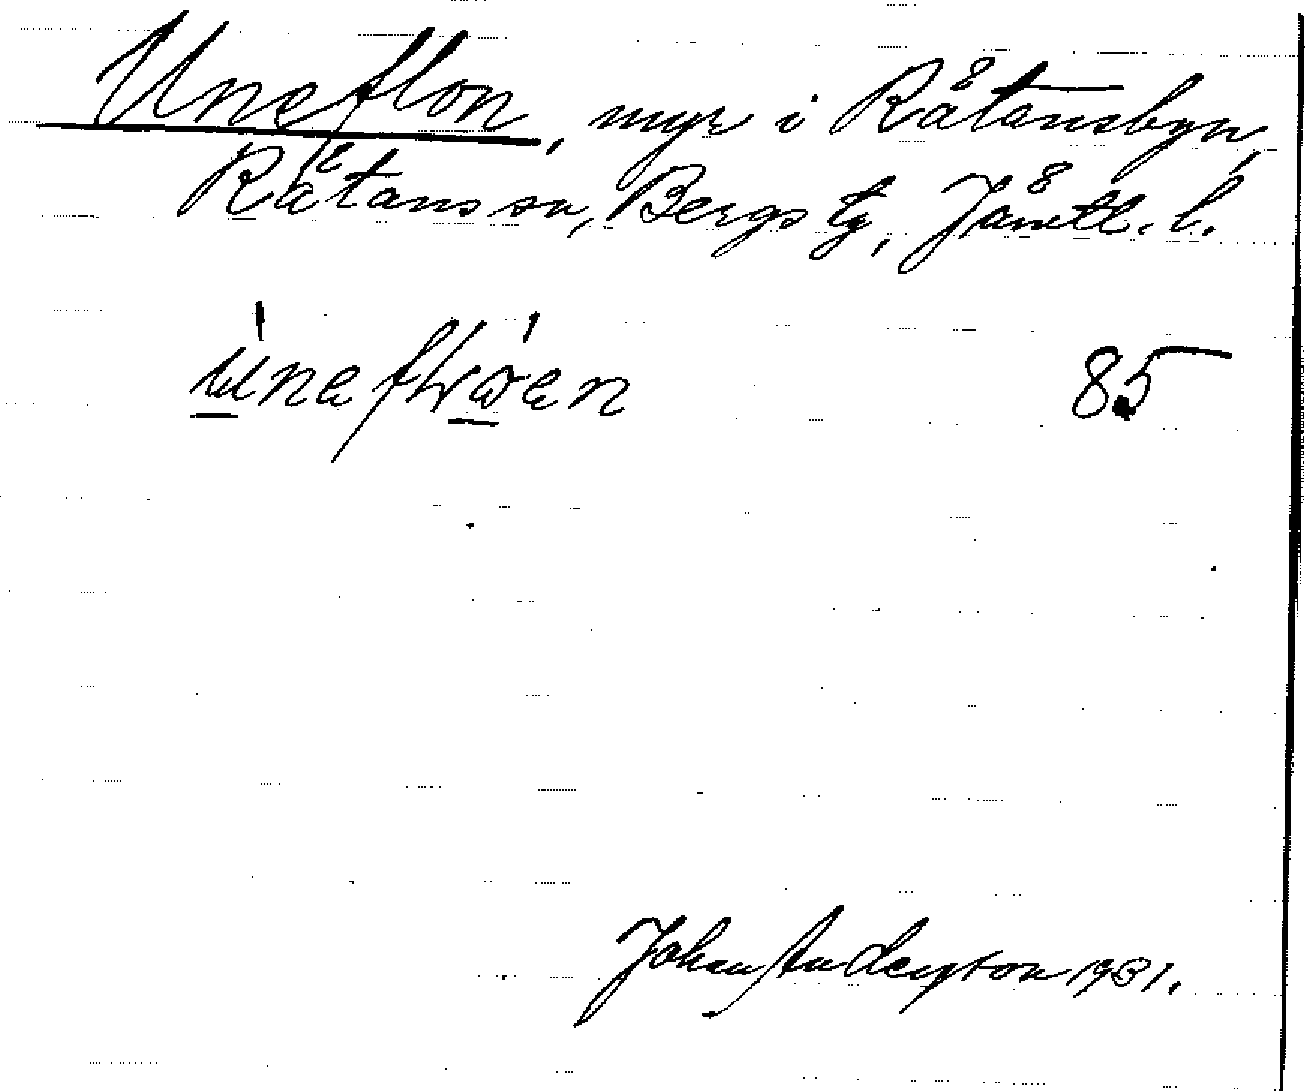 Uneflon, myr i Råtansbyn,
Råtans sn, Bergs tg, Jämtl. l.
85
Johan Anderson 1931.